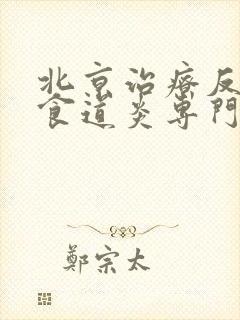 北京治療反
食道炎専門
鄭宗太